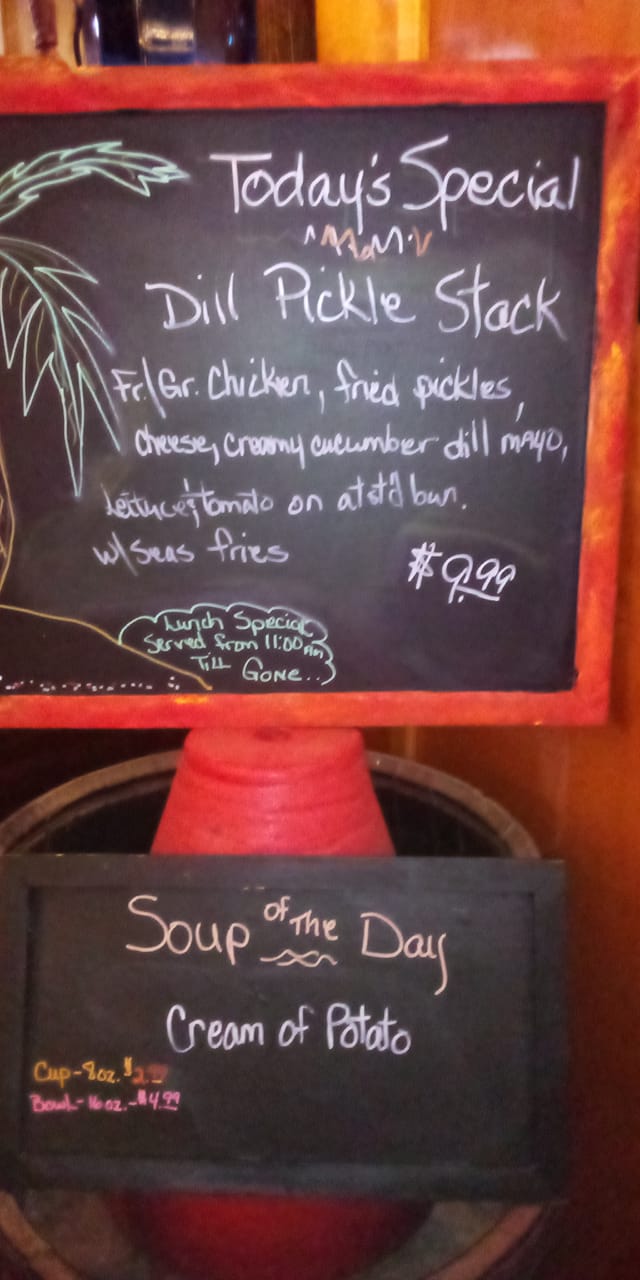 Today's Special
Dill Pickle Stack
Fr./Gr. Chicken, fried pickles,
cheese, creamy cucumber dill mayo,
lettuce, & tomato on a tst'd bun.
w/ seas fries
$9.99
Lunch Special
Served from 11:00am
Till Gone..
Soup of The Day
Cream of Potato
Cup-8oz. $2.99
Bowl-16oz.-$4.99